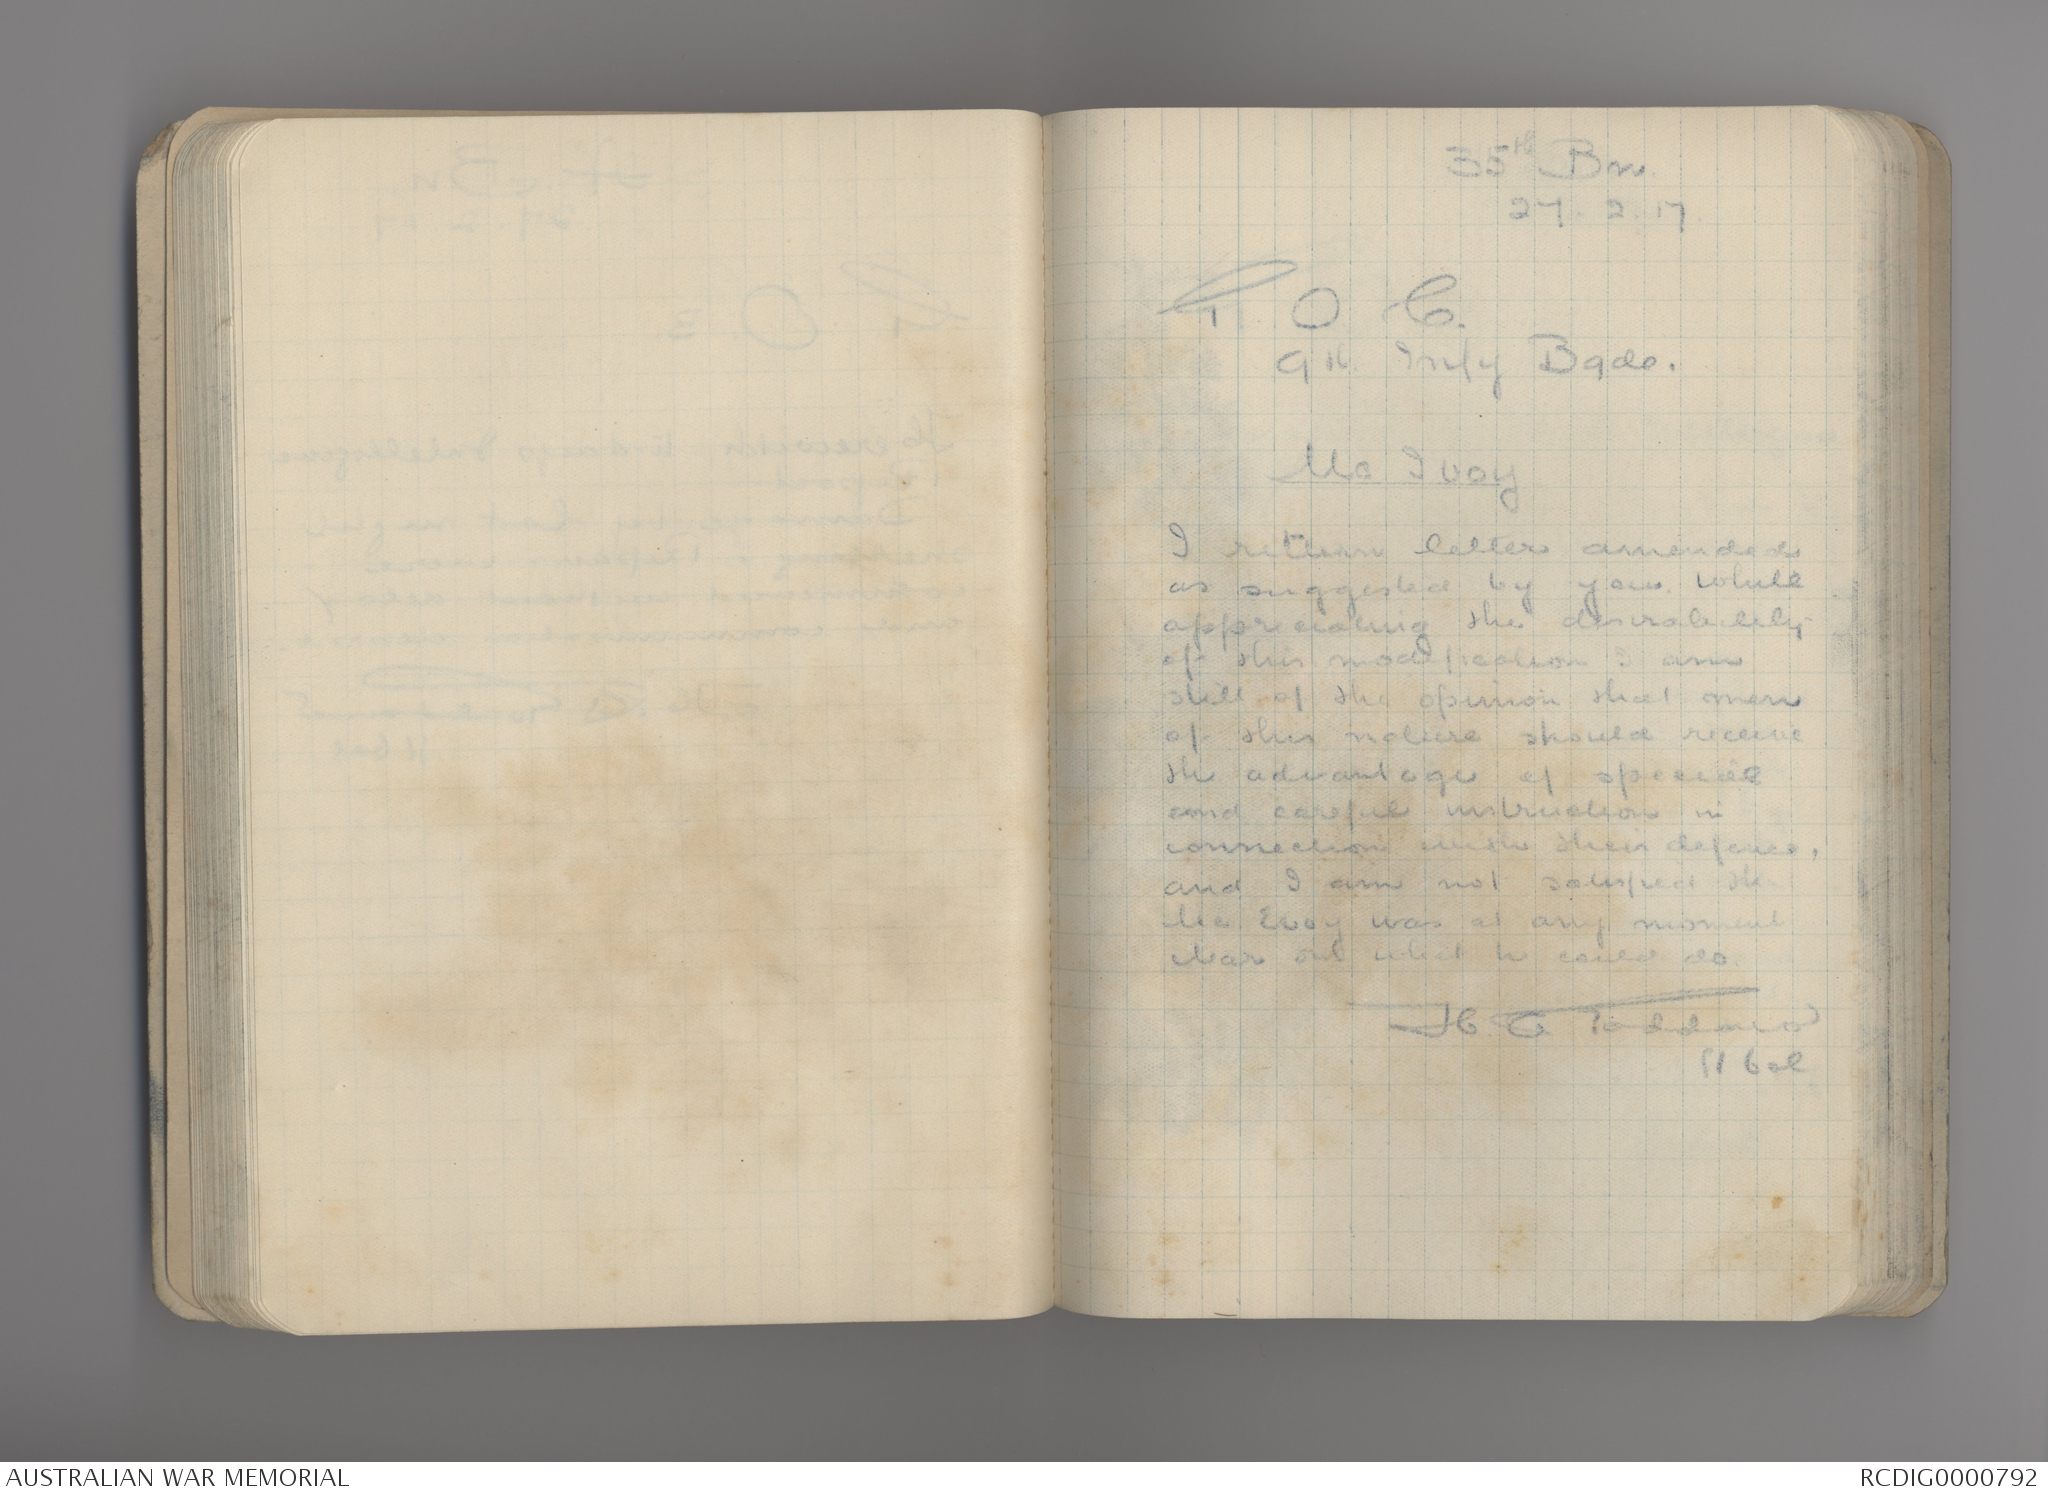 35th Bn
27. 2. 17
G. O. C.
9th Infy Bgde.
Mc Ivoy
I return letter amended
as suggested by you. While
appreciating the desirability
of this modification I am
still of the opinion that men
of this nature should receive
the advantage of special
and careful instruction in
connection with their defence,
and I am not satisfied
Mc Evoy was at any moment
clear on what he could do.
H. A. Goddard
Lt Col
AUSTRALIAN WAR MEMORIAL
RCDIG0000792